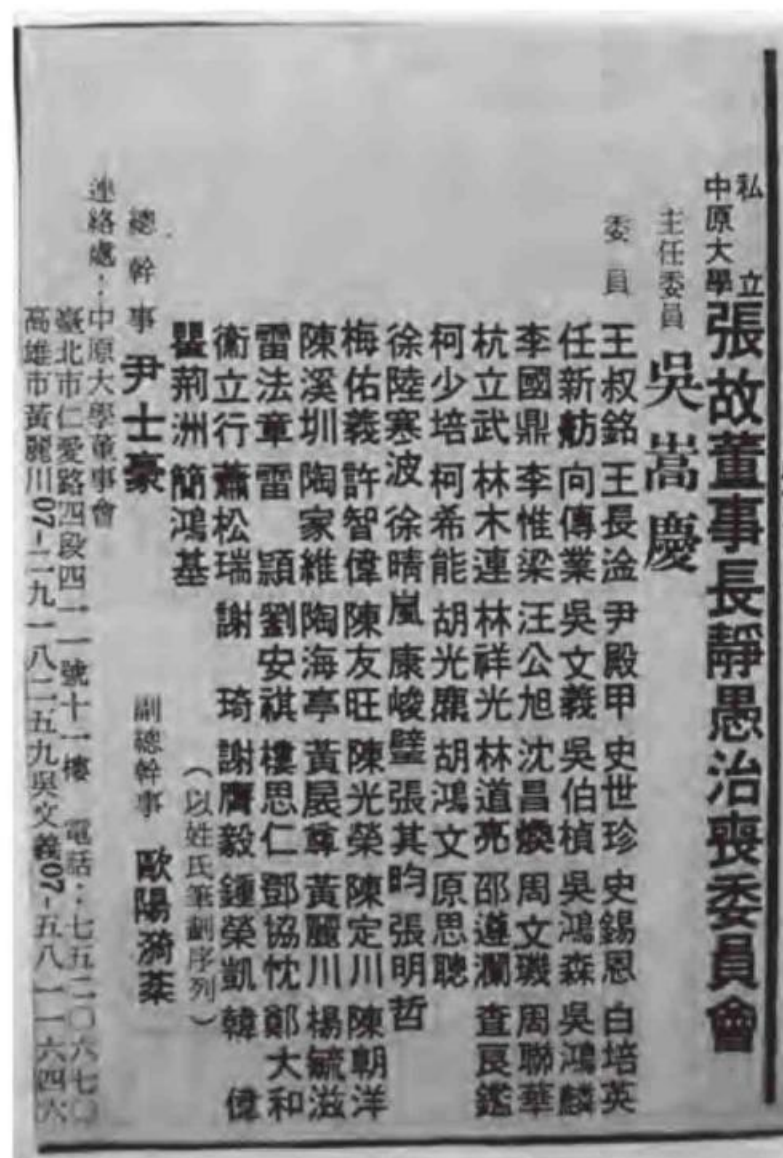 私立中原大學張故董事長靜愚治喪委員會
主任委員 吳嵩慶
委員 王叔銘 王長淦 尹殿甲 史世珍 史錫恩 白培英
任新舫 向傳業 吳文義 吳伯楨 吳鴻森 吳鴻麟
李國鼎 李惟梁 汪公旭 沈昌煥 周文璣 周聯華
杭立武 林木連 林祥光 林道亮 邵遵瀾 查良鑑
柯少培 柯希能 胡光麃 胡鴻文 原思聰
徐陸寒波 徐晴嵐 康峻璧 張其昀 張明哲
梅佑義 許智偉 陳友旺 陳光榮 陳定川 陳朝洋
陳溪圳 陶家維 陶海亭 黃展尊 黃麗川 楊毓滋
雷法章 雷穎 劉安祺 樓思仁 鄧協忱 鄭大和
衞立行 蕭松瑞 謝琦 謝膺毅 鍾榮凱 韓偉
瞿荊洲 簡鴻基
(以姓氏筆劃序列)
總幹事 尹士豪 副總幹事 歐陽漪棻
連絡處:中原大學董事會
臺北市仁愛路四段四一一號十一樓 電話:七五二〇六七〇
高雄市黃麗川07-二九一八二五九吳文義07-五八一一六四六